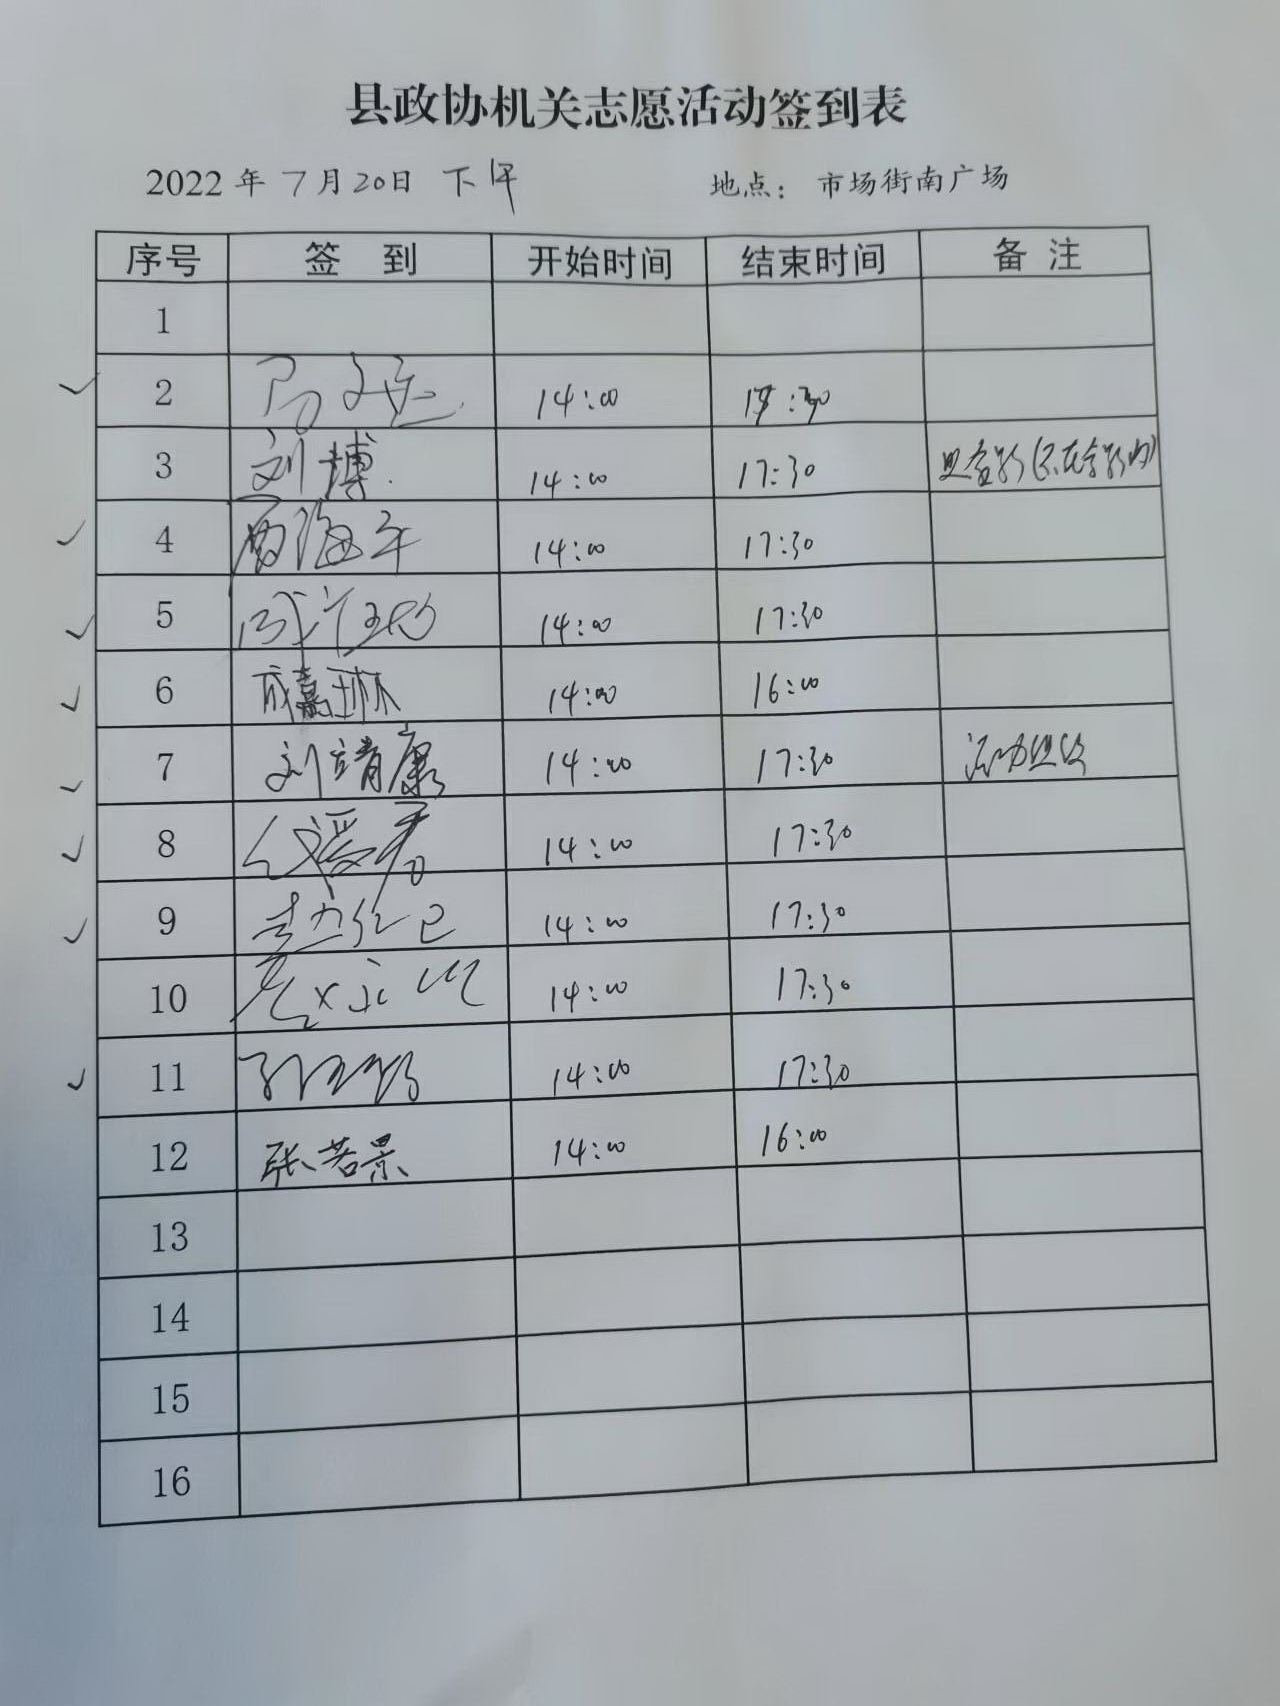 县政协机关志愿活动签到表
2022 年 7 月 20 日 下午 地点： 市场街南广场
序号 签 到 开始时间 结束时间 备 注
1
2 14:00
3 刘博 14:00 17:30
4 14:00 17:30
5 14:00 17:30
6 成嘉琳 14:00 16:00
7 刘靖康 14:00 17:30
8 14:00 17:30
9 14:00 17:30
10 14:00 17:30
11 14:00 17:30
12 张若景 14:00 16:00
13
14
15
16